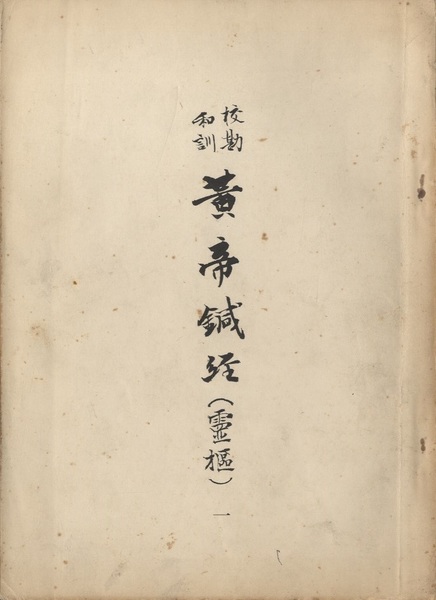 校勘
和訓
黃帝鍼経(靈樞)一